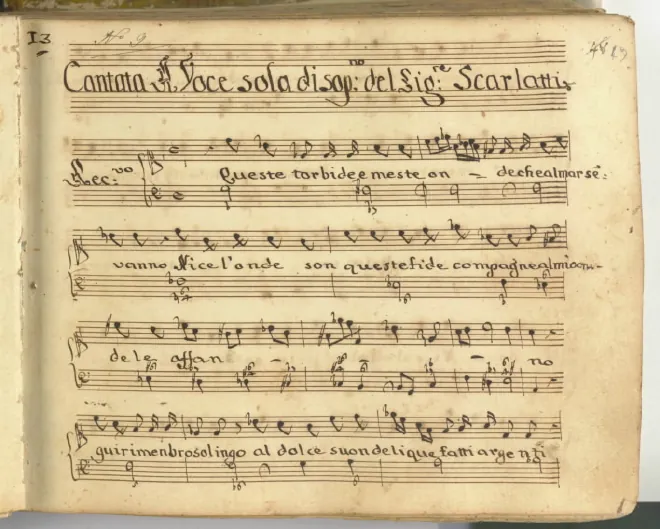 13 No 9
Cantata A Voce sola di sop:no del Sig:re Scarlatti
Rec:vo Queste torbide e meste on - de che al mar sē:
vanno Nice l'onde son queste fide compagne al mio cru-
dele affan - - no
qui rimenbro solingo al dolce suon deli quefatti argenti